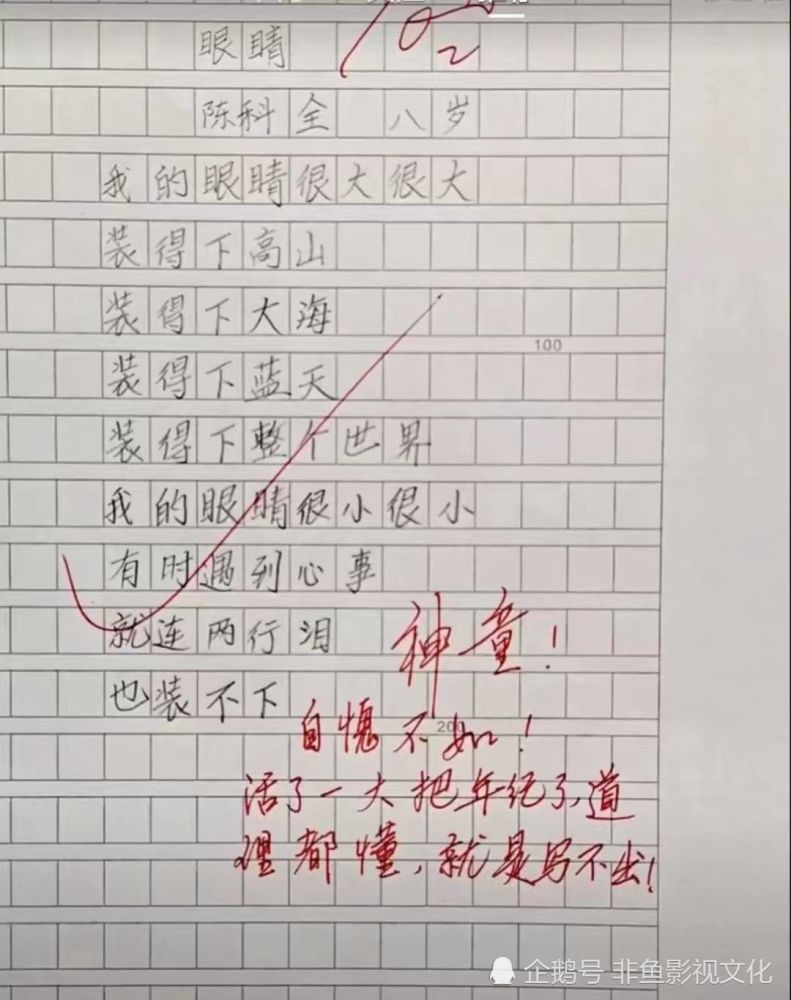 眼睛
陈科全 八岁
我的眼睛很大很大
装得下高山
装得下大海
装得下蓝天
装得下整个世界
我的眼睛很小很小
有时遇到心事
就连两行泪
也装不下
神童!
自愧不如!
活了一大把年纪了,道
理都懂,就是写不出!
100
200
企鹅号 非鱼影视文化